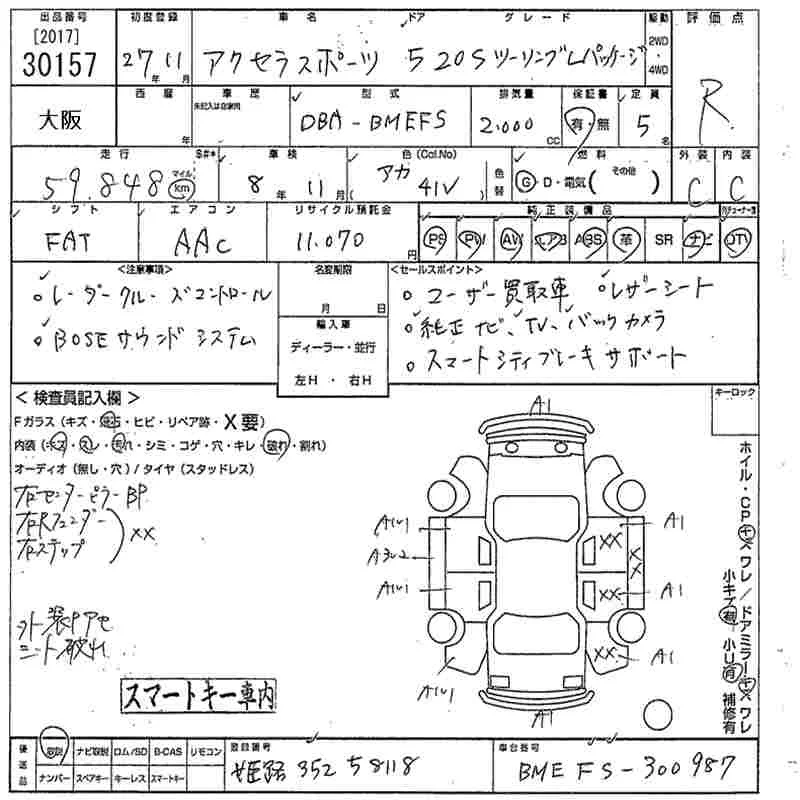 出品番号 初度登録 車名 ドア グレード 駆動 評価点
[2017]
30157 27年 11月 アクセラスポーツ 5 20S ツーリング Lパッケージ 2WD・4WD R
西暦 車歴 型式 排気量 保証書 定員
未記入は自家用
大阪 年 DBA-BMEFS 2.000 CC 有・無 5名
走行 S#* 車検 色(Col.No) 燃料 外装 内装
59.848 マイル km 8年 11月 アカ (41V) 色替 G・D・電気( その他 ) C C
シフト エアコン リサイクル預託金 純正装備品
FAT AAC 11.070円 PS PW AW エアB ABS 革 SR ナビ TV
<注意事項> 名変期限 <セールスポイント>
。レーダークルーズコントロール 月 日 。ユーザー買取車 。レザーシート
。BOSEサウンドシステム 輸入車 。純正ナビ、TV、バックカメラ
ディーラー・並行 。スマートシティブレーキサポート
左H・右H
<検査員記入欄> キーロック
Fガラス(キズ・飛石・ヒビ・リペア跡・X要)
内装(キズ・スレ・汚れ・シミ・コゲ・穴・キレ・破れ・割れ)
オーディオ(無し・穴)/タイヤ(スタッドレス)
右センターピラーBP
右Rフェンダー
右ステップ
XX
外装Pアセ
ニット破れ
スマートキー車内
A1
A1U1 A1
XX
A3U2 XX
A1U1 XX A1
XX A1
A1U1
A1
ホイル・CPキズワレ/ドアミラーキズワレ
小キズ有 小U有 補修有
後送品 取説 ナビ取説 ロム/SD B-CAS リモコン 登録番号 車台番号
ナンバー スペアキー キーレス スマートキー 姫路 352 58118 BMEFS-300987